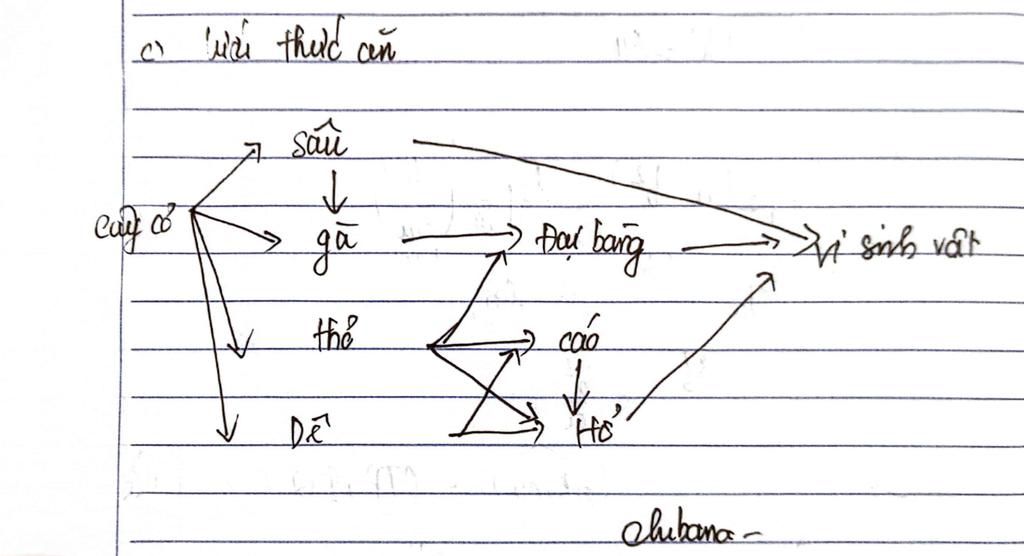 c) lưới thức ăn
sâu
cây cỏ gà Đại bàng vi sinh vật
thỏ cáo
Dê Hổ